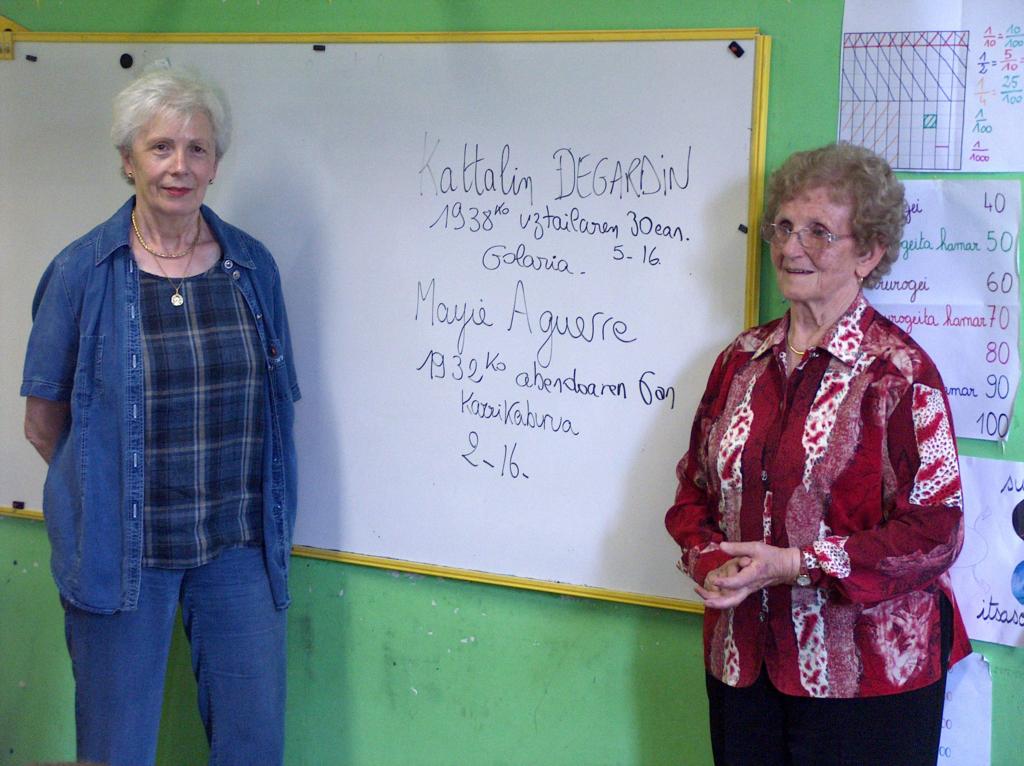 Kattalin DEGARDIN
1938ko uztailaren 30ean.
5-16.
Golaria.
Mayie Aguerre
1932ko abendoaren 6an
Karrikaburua
2-16.
1/10 = 10/100
1/2 = 5/10 =
1/4 = 25/100
1/100
1/1000
gei 40
rogeita hamar 50
rurogei 60
urogeita hamar 70
80
amar 90
100
su
itsaso